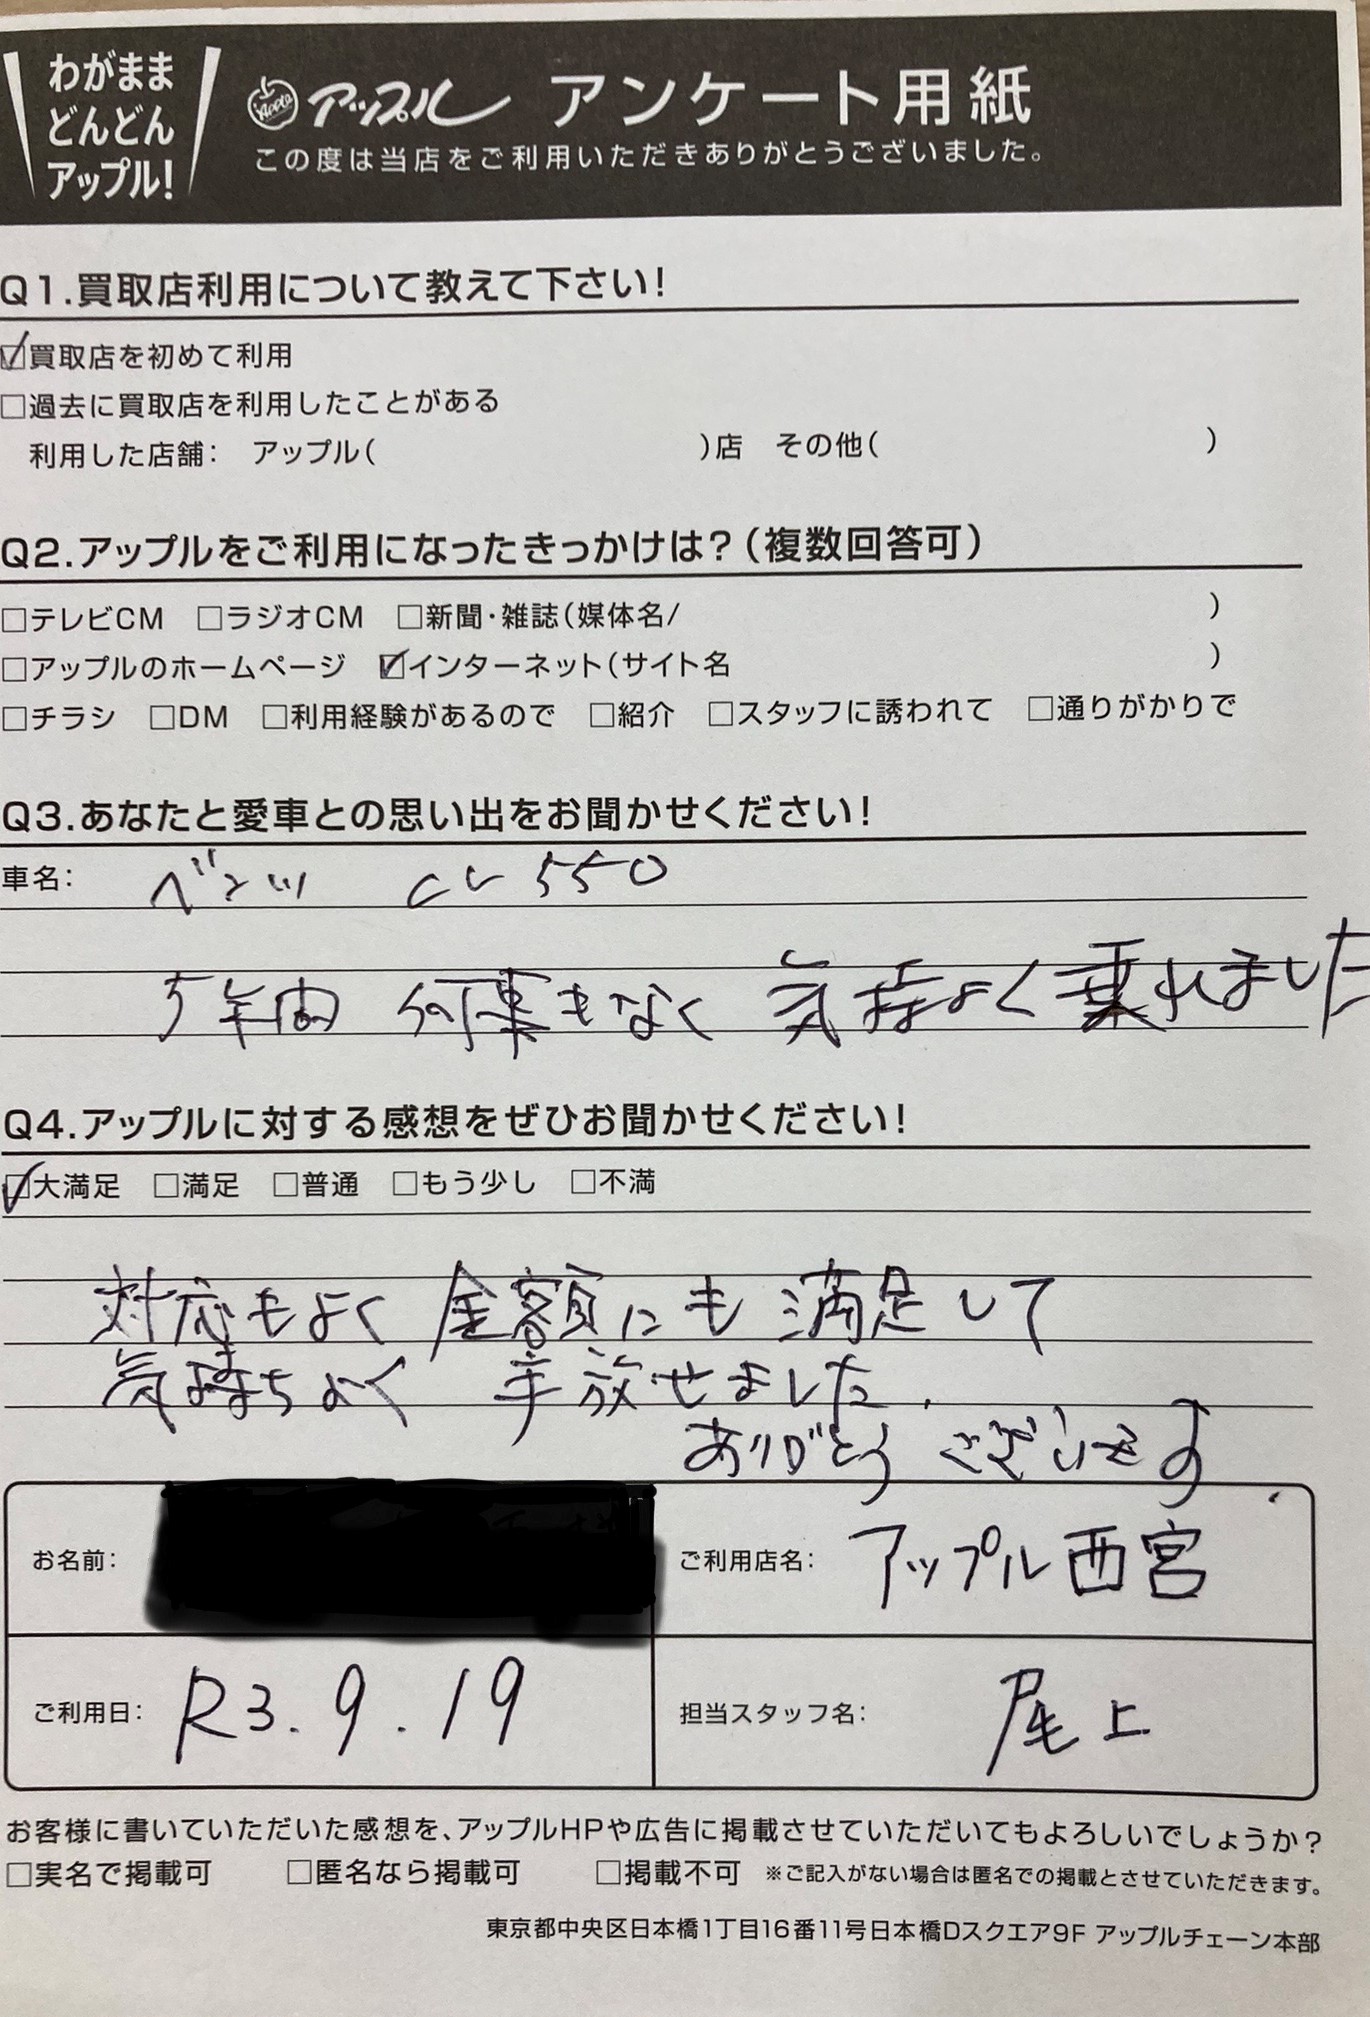 わがまま
どんどん
アップル!
Apple アップル アンケート用紙
この度は当店をご利用いただきありがとうございました。
Q1.買取店利用について教えて下さい!
☑買取店を初めて利用
□過去に買取店を利用したことがある
利用した店舗: アップル( )店 その他( )
Q2.アップルをご利用になったきっかけは?(複数回答可)
□テレビCM □ラジオCM □新聞・雑誌(媒体名/ )
□アップルのホームページ ☑インターネット(サイト名 )
□チラシ □DM □利用経験があるので □紹介 □スタッフに誘われて □通りがかりで
Q3.あなたと愛車との思い出をお聞かせください!
車名: ベンツ CL550
5年間 何事もなく 気持よく乗れました
Q4.アップルに対する感想をぜひお聞かせください!
☑大満足 □満足 □普通 □もう少し □不満
対応もよく 金額にも満足して
気持ちよく 手放せました.
ありがとうございます
お名前: ご利用店名: アップル西宮
ご利用日: R3.9.19 担当スタッフ名: 尾上
お客様に書いていただいた感想を、アップルHPや広告に掲載させていただいてもよろしいでしょうか?
□実名で掲載可 □匿名なら掲載可 □掲載不可 ※ご記入がない場合は匿名での掲載とさせていただきます。
東京都中央区日本橋1丁目16番11号日本橋Dスクエア9F アップルチェーン本部